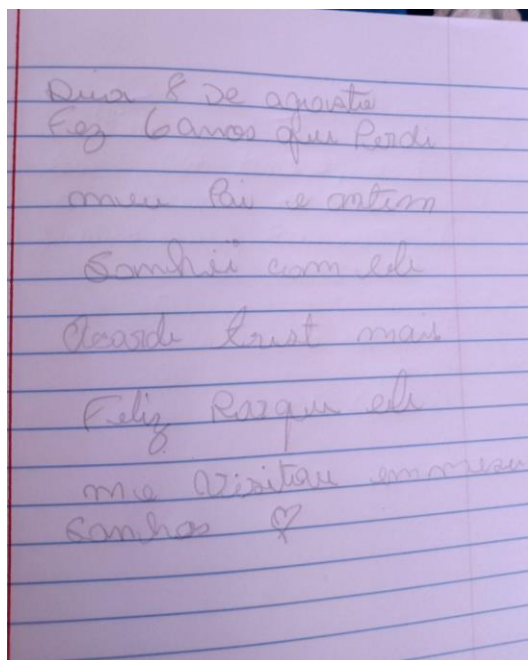 Dia 8 De agosto
Fez 6 anos que Perdi
meu Pai e ontem
Sonhei com ele
Acorde trist mais
Feliz Porque ele
me Visitou em meu
Sonhos ♡